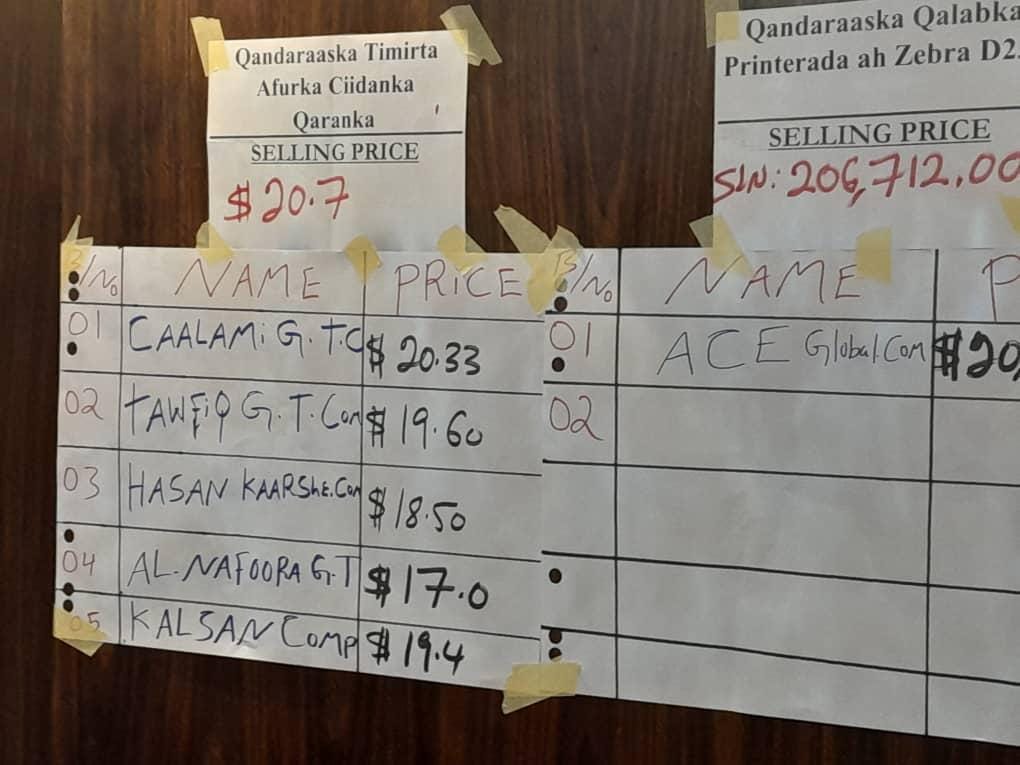 Qandaraaska Timirta
Afurka Ciidanka
Qaranka
SELLING PRICE
$ 20.7
S/No NAME PRICE
01 CAALAMi G. T.C $ 20.33
02 TAWFiQ G. T. Com $ 19.60
03 HASAN KAARShE.Com $ 18.50
04 AL-NAFOORA G.T $ 17.0
05 KALSAN Comp $ 19.4
Qandaraaska Qalabka
Printerada ah Zebra D2
SELLING PRICE
206,712.00
S/No NAME P
01 ACE Global.Com $20
02